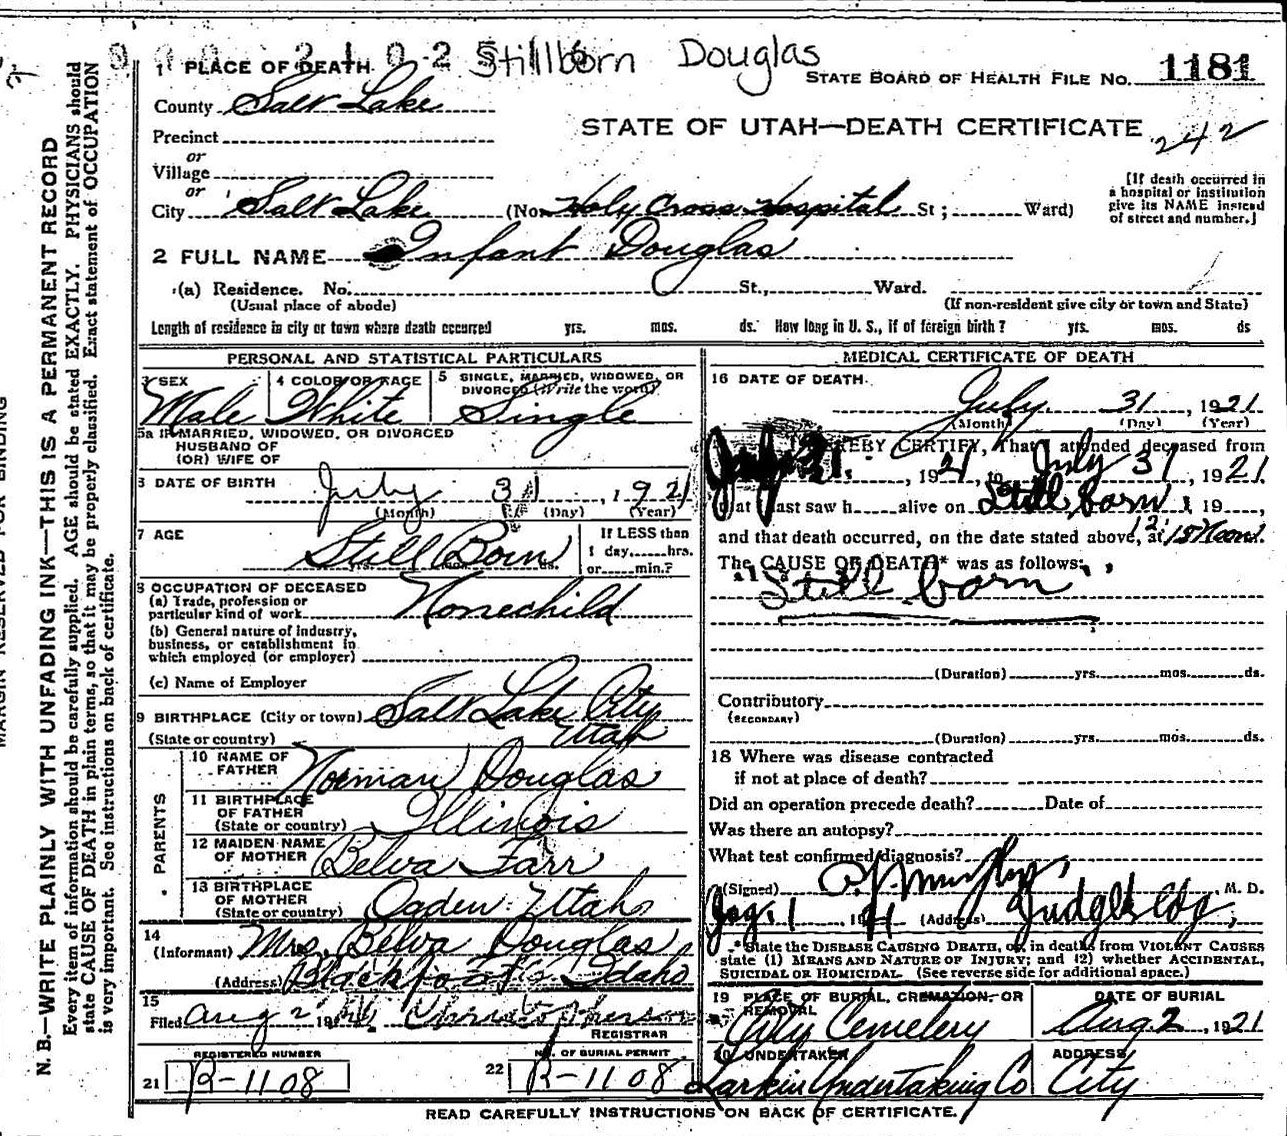 Stillborn Douglas
1 PLACE OF DEATH
STATE BOARD OF HEALTH FILE NO. 1181
County Salt Lake
STATE OF UTAH—DEATH CERTIFICATE
242
Precinct
or
Village
or
City Salt Lake (No. Holy Cross Hospital St.; Ward)
[If death occurred in
a hospital or institution
give its NAME instead
of street and number.]
2 FULL NAME Infant Douglas
(a) Residence. No. St., Ward.
(Usual place of abode) (If non-resident give city or town and State)
Length of residence in city or town where death occurred yrs. mos. ds. How long in U. S., if of foreign birth? yrs. mos. ds
PERSONAL AND STATISTICAL PARTICULARS
3 SEX Male
4 COLOR OR RACE White
5 SINGLE, MARRIED, WIDOWED, OR
DIVORCED (Write the word) Single
5a IF MARRIED, WIDOWED, OR DIVORCED
HUSBAND OF
(OR) WIFE OF
6 DATE OF BIRTH July 31, 1921
(Month) (Day) (Year)
7 AGE Still Born
If LESS than
1 day, hrs.
or min.?
8 OCCUPATION OF DECEASED
(a) Trade, profession or
particular kind of work None child
(b) General nature of industry,
business, or establishment in
which employed (or employer)
(c) Name of Employer
9 BIRTHPLACE (City or town) Salt Lake City
(State or country) Utah
PARENTS
10 NAME OF
FATHER Norman Douglas
11 BIRTHPLACE
OF FATHER
(State or country) Illinois
12 MAIDEN NAME
OF MOTHER Belva Farr
13 BIRTHPLACE
OF MOTHER
(State or country) Ogden Utah
14
(Informant) Mrs. Belva Douglas
(Address) Blackfoot Idaho
15
Filed Aug 2 19
REGISTRAR
REGISTERED NUMBER
21 R-1108
NO. OF BURIAL PERMIT
22 R-1108
MEDICAL CERTIFICATE OF DEATH
16 DATE OF DEATH
July 31, 1921
(Month) (Day) (Year)
HEREBY CERTIFY, That I attended deceased from
July 31, 1921, to July 31, 1921
that I last saw h alive on Still born, 19
and that death occurred, on the date stated above, at 12:15 Noon.
The CAUSE OF DEATH* was as follows:
Still born
(Duration) yrs. mos. ds.
Contributory
(SECONDARY)
(Duration) yrs. mos. ds.
18 Where was disease contracted
if not at place of death?
Did an operation precede death? Date of
Was there an autopsy?
What test confirmed diagnosis?
(Signed) P. J. Murphy, M. D.
Aug. 1 19 21 (Address) Judge Bldg,
*State the DISEASE CAUSING DEATH, or, in deaths from VIOLENT CAUSES
state (1) MEANS AND NATURE OF INJURY; and (2) whether ACCIDENTAL,
SUICIDAL OR HOMICIDAL. (See reverse side for additional space.)
19 PLACE OF BURIAL, CREMATION, OR
REMOVAL City Cemetery
DATE OF BURIAL
Aug 2, 1921
20 UNDERTAKER
Larkin Undertaking Co
ADDRESS
City
READ CAREFULLY INSTRUCTIONS ON BACK OF CERTIFICATE.
MARGIN RESERVED FOR BINDING
N. B.—WRITE PLAINLY WITH UNFADING INK—THIS IS A PERMANENT RECORD
Every item of information should be carefully supplied. AGE should be stated EXACTLY. PHYSICIANS should
state CAUSE OF DEATH in plain terms, so that it may be properly classified. Exact statement of OCCUPATION
is very important. See instructions on back of certificate.